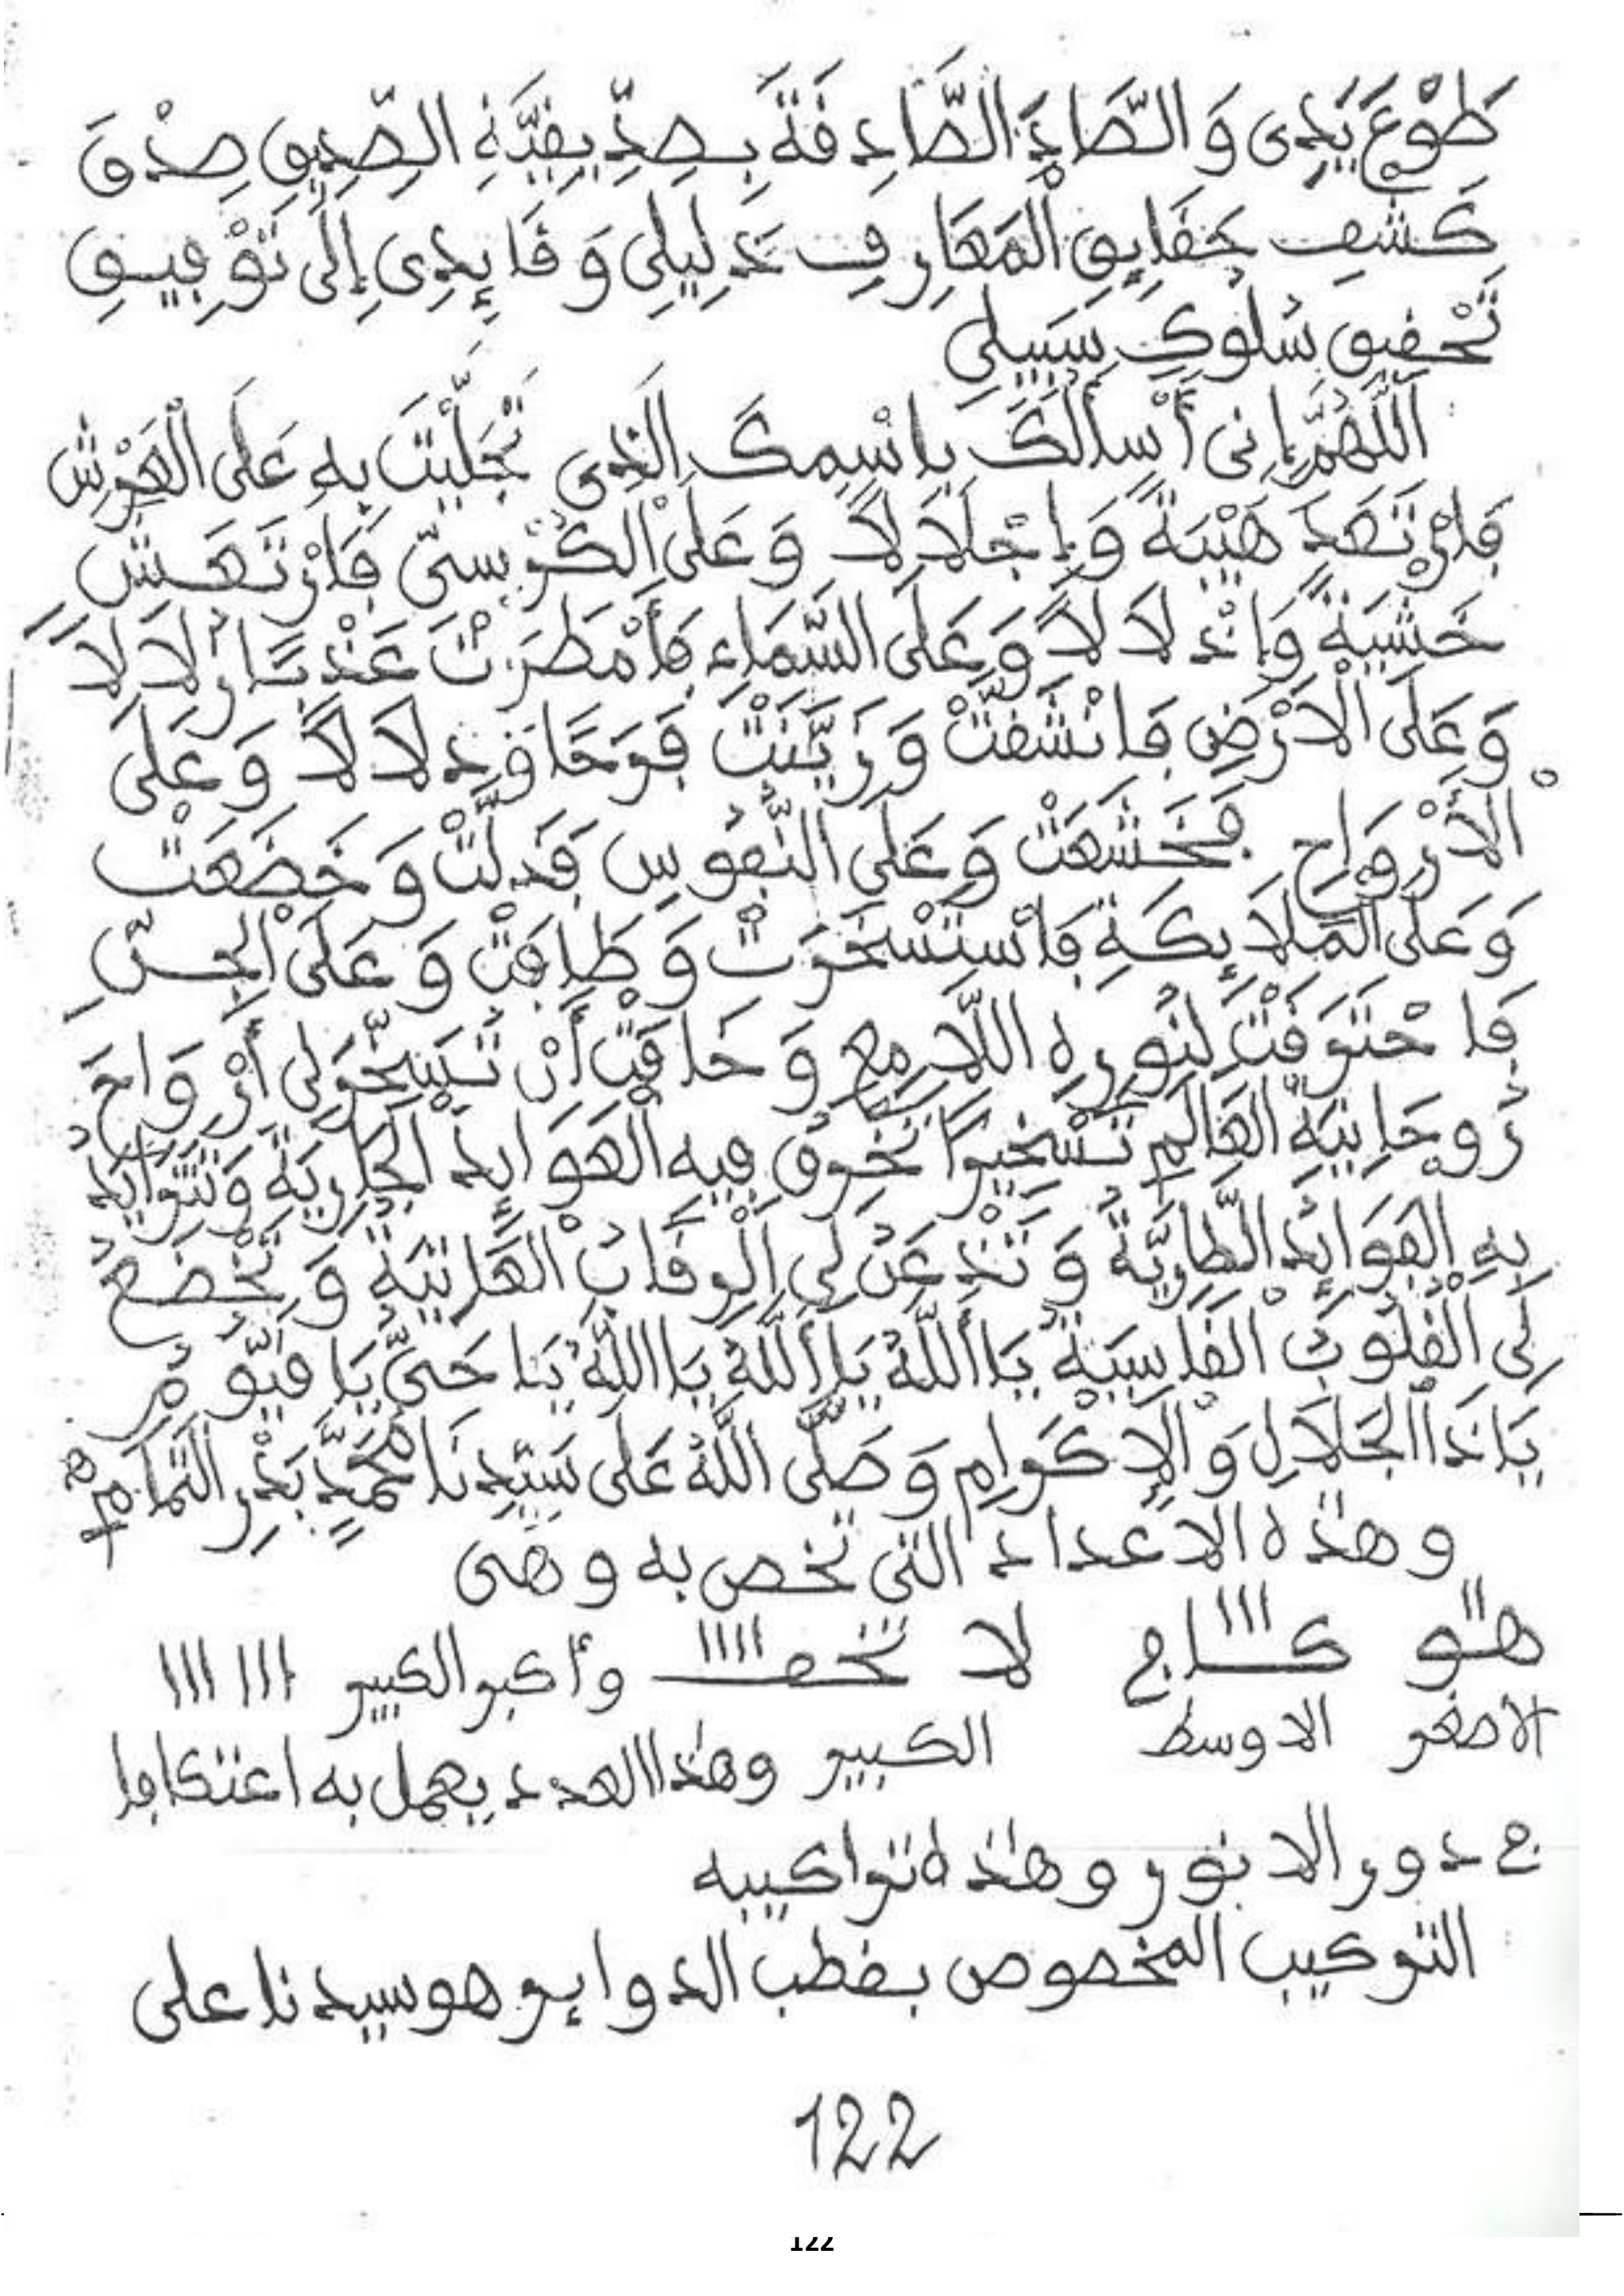 طَوْعَ يَدِى وَالصَّادِ الصَّادِفَةَ بِصِدِّيقِيَّةِ الصِّدِيقِ صِدْقَ
كَشْفِ حَقَايِقِ الْمَعَارِفِ دَلِيلِى وَقَايِدِى إِلَى تَوْفِيقِ
تَحْقِيقِ سُلُوكِ سَبِيلِى
اَللَّهُمَّ إِنى أَسْألُكَ بِاسْمِكَ الَذِى تَجَلَّيْتَ بِهِ عَلَى الْعَرْشِ
فَارْتَعَدَ هَيْبَةً وَإِجْلَالاً وَعَلَى الْكُرْسىّ فَارْتَعَشَ
خَشْيَةً وَإِذْلَالاً وَعَلَى السَّمَاءِ فَأَمْطَرَتْ عَذْبًا زُلَالاً
وَعَلَى الْاَرْضِ فَانْشَقَّتْ وَزَيَّنَتْ فَرَحًا وَدَلَالاً وَعَلَى
الْأَرْوَاحِ فَخَشَعَتْ وَعَلَى النُّفُوسِ فَذَلَّتْ وَخَضَعَتْ
وَعَلَى الْمَلَايِكَةِ فَاسْتَسْخَرَتْ وَطَافَتْ وَعَلَى الْجِنِّ
فَاحْتَرَقَتْ لِنُورِهِ اللَّامِعِ وَخَافَتْ أَنْ تُسَخِّرَلِى أَرْوَاحَ
رُوحَانِيَةِ الْعَالَمِ تَسْخِيرًا تَخْرِقُ فِيهِ الْعَوَايِدَ الْجَارِيَةَ وَتَتَزَايَدُ
بِهِ الْفَوَائِدُ الطَّارِيَّةُ وَتَذْعَنُ لِى الرِقَابُ الْعَاتِيَةُ وَتَخْضَعُ
لِىَ الْقُلُوبُ الْقَاسِيَةُ يَا أَللَّهُ يَا أَللَّهُ يَا اللَّهُ يَا حَىُّ يَا قَيُّومُ
يَاذَا الْجَلَالِ وَالْاِكْرَامِ وَصَلَّى اللَّهُ عَلَى سَيِّدِنَا مُحَمَّدٍ بَدْرِ التَّمَامِ
وهذه الاعداد التى تخص به وهى
هو كاج لا وأكبر الكبير ااا ااا
الاصغر الاوسط الكبير وهذا العدد يعمل به اعتكافا
ج دور الانور وهذه تراكيبه
التركيب المخصوص بقطب الدوايرهو سيدنا على
122
122